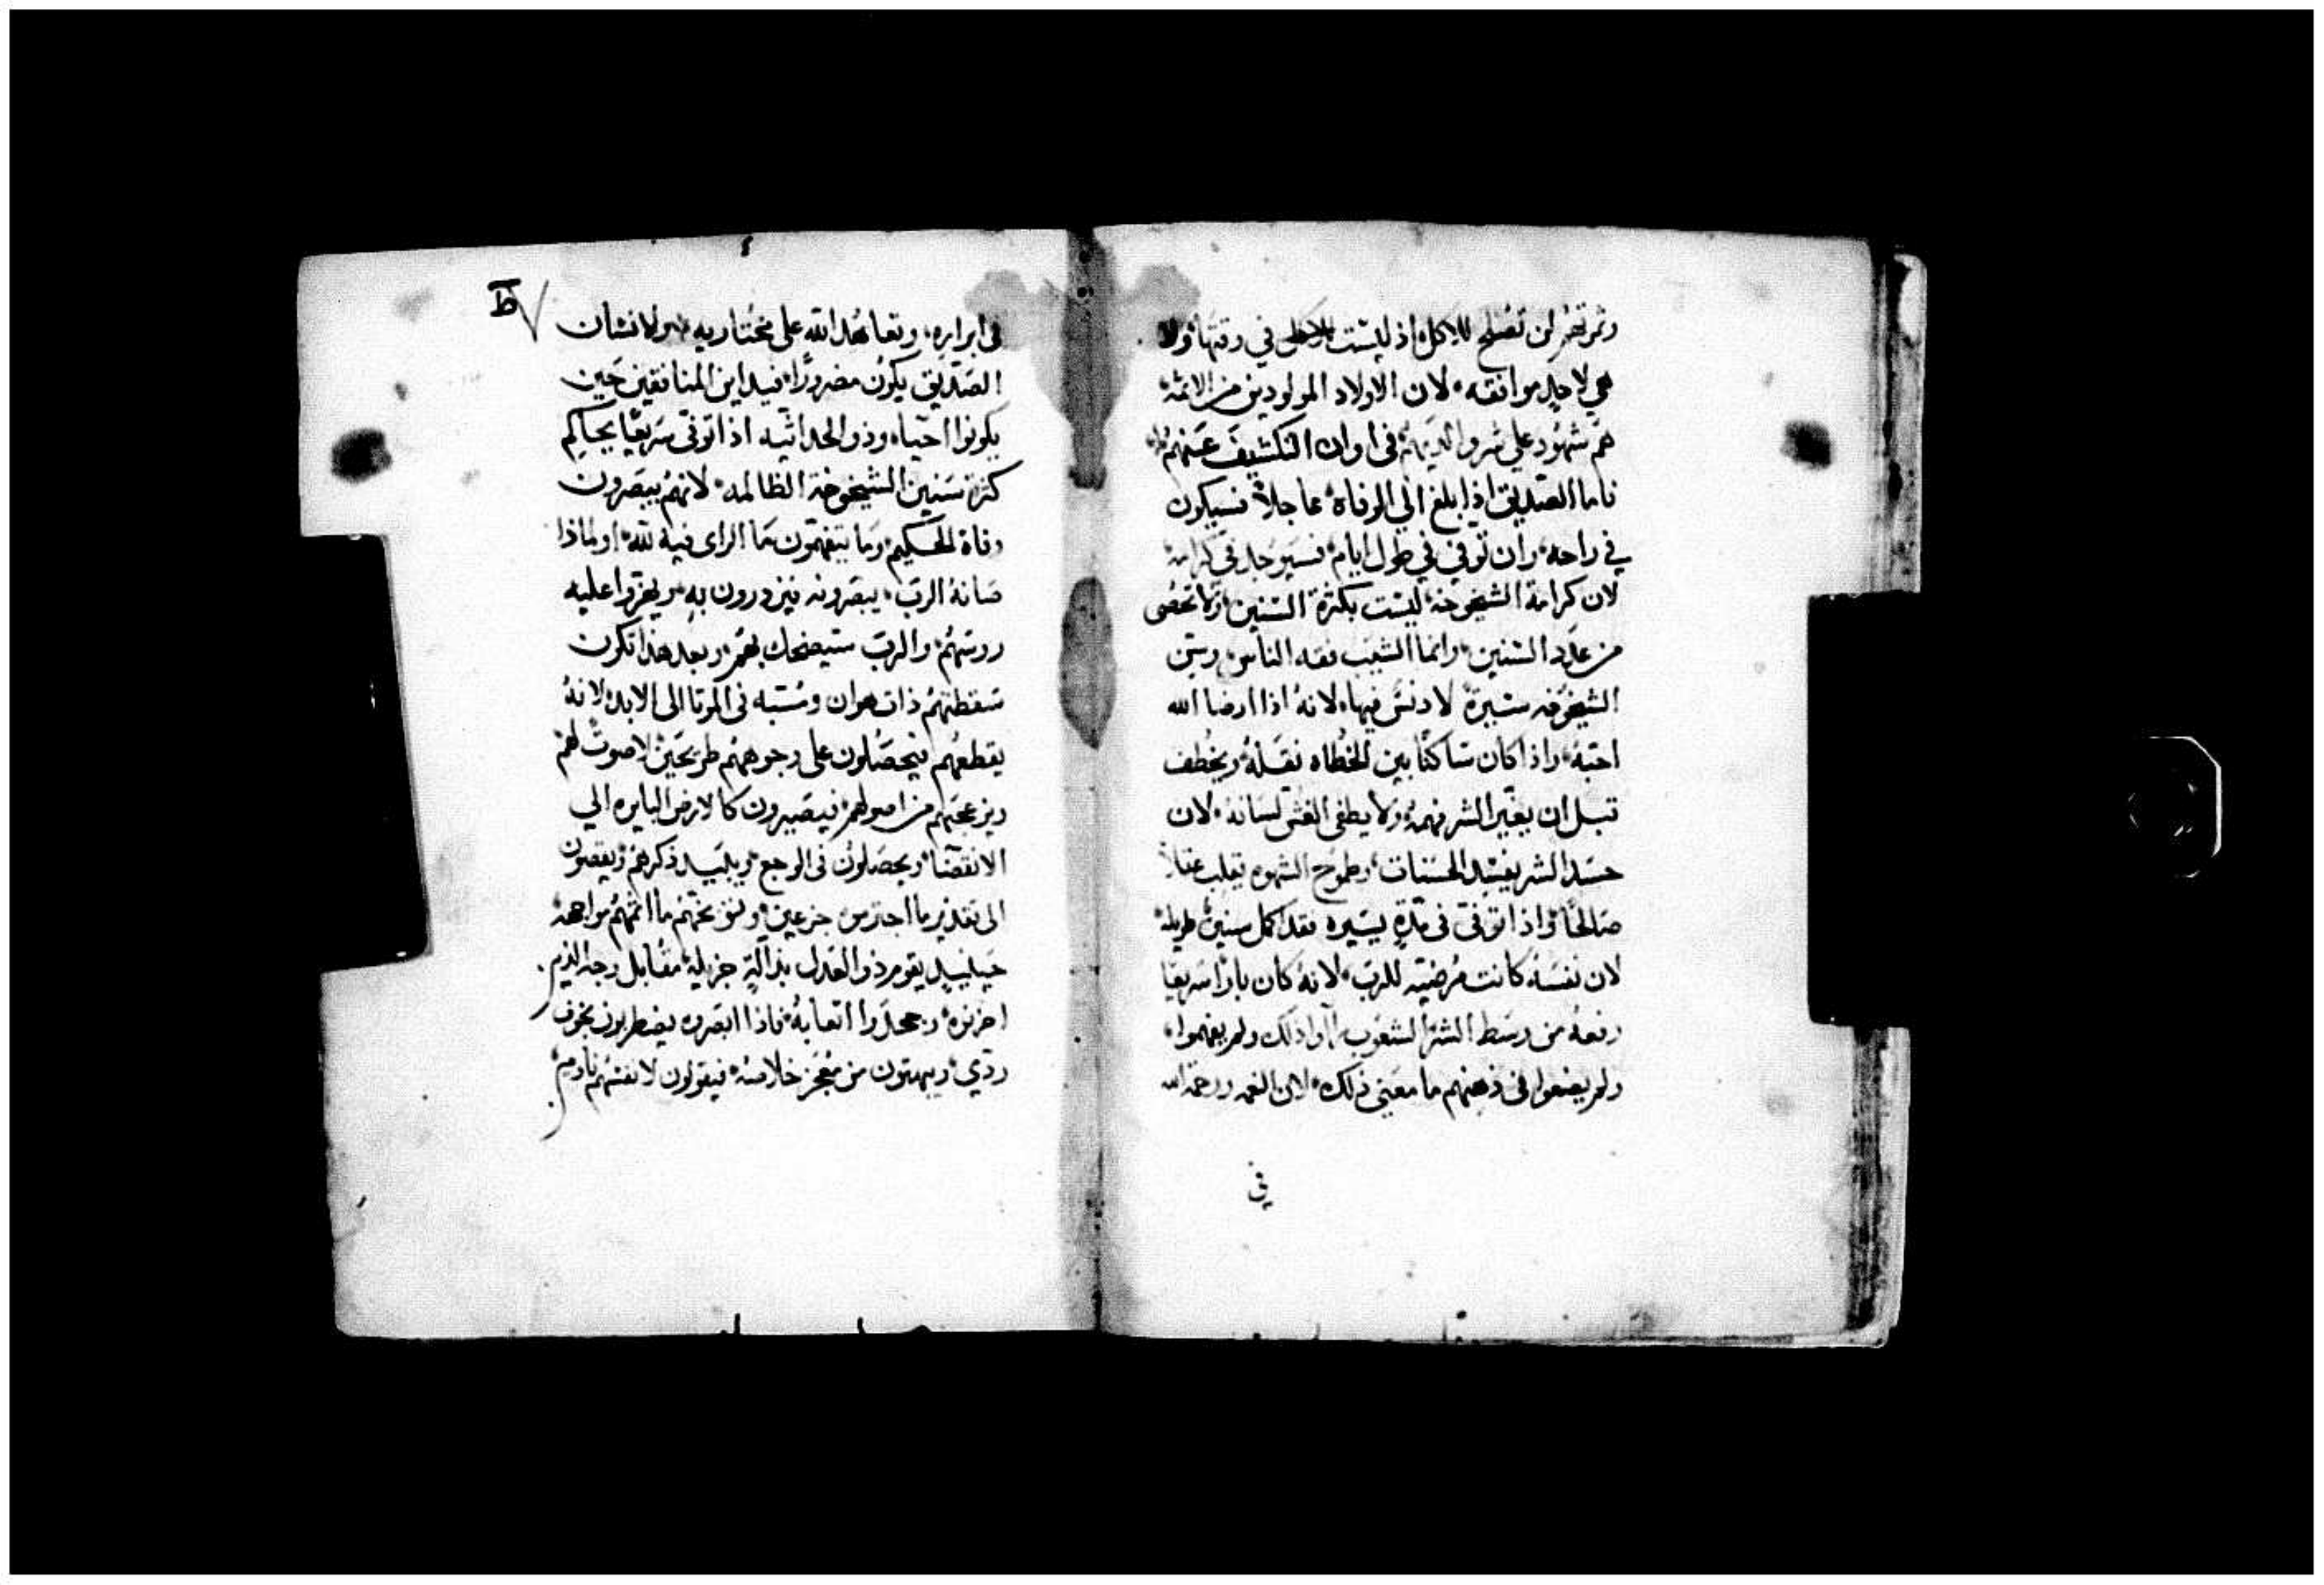 وثمرتهم لن تصلح للاكل اذ ليست للاكل في وقتها ولا
هي لاحد موافقه لان الاولاد المولودين من الاثمة
هم شهود علي شر والديهم في اوان التكشيف عنهم
فاما الصديق اذا بلغ الي الوفاة عاجلاً فسيكون
في راحه وان توفي في طول ايام فسيوجد في كرامة
لان كرامة الشيخوخة ليست بكثرة السنين ولا تحصى
من عدد السنين وانما الشيب فقه الناس وسن
الشيخوخه سيرة لا دنس فيها لانه اذا ارضا الله
احبهُ واذا كان ساكنًا بين الخطاه نقلهُ ويخطف
قبل ان يغير الشر فهمهُ ولا يطغى الغش لسانه لان
حسد الشر يفسد الحسنات وطموح الشهوه يقلب عقلاً
صالحًا واذا توفى فى مدةٍ يسيره فقد اكمل سنين طويلة
لان نفسهُ كانت مُرضيه للرب لانهُ كان بادرًا سريعًا
رفعهُ من وسط الشر الشعوب راوا ذلك ولم يفهموا
ولم يضعوا فى ذهنهم ما معنى ذلك لان النعمه ورحمة الله
في
فى ابراره وتعاهد الله على مختاريه ولانسان
الصديق يكون مضرورًا فيداين المنافقين حين
يكونوا احياء وذو الحداثيه اذا توفى سريعًا يحاكم
كثرة سنين الشيخوخة الظالمه لانهم يبصرون
وفاة الحكيم وما يتفهمون ما الراى فيه لله او لماذا
صانهُ الرب يبصرونه فيزدرون به ويهزوا عليه
روسهُم والرب سيضحك بهم وبعد هذا تكون
سقطتهم ذات هوان ومسبه فى الموتا الى الابد لانهُ
يقطعهم فيحصلون على وجوههم طريحين لا صوت لهم
ويزعجهم من اصولهم فيصيرون كالارض البايره الي
الانقضا ويحصلون فى الوجع ويبيد ذكرهم ويقصون
الى تقدير ما اجترموه جزعين وتوبخهم ما اثمهم مواجهة
حينيذٍ يقوم ذو العدل بدالةٍ جزيلة مقابل وجه الذين
احزنوه وجحدوا اتعابهُ فاذا ابصروه يضطربون بخوف
ردي ويبهتون من معجز خلاصه فيقولون لانفسهم نادمين